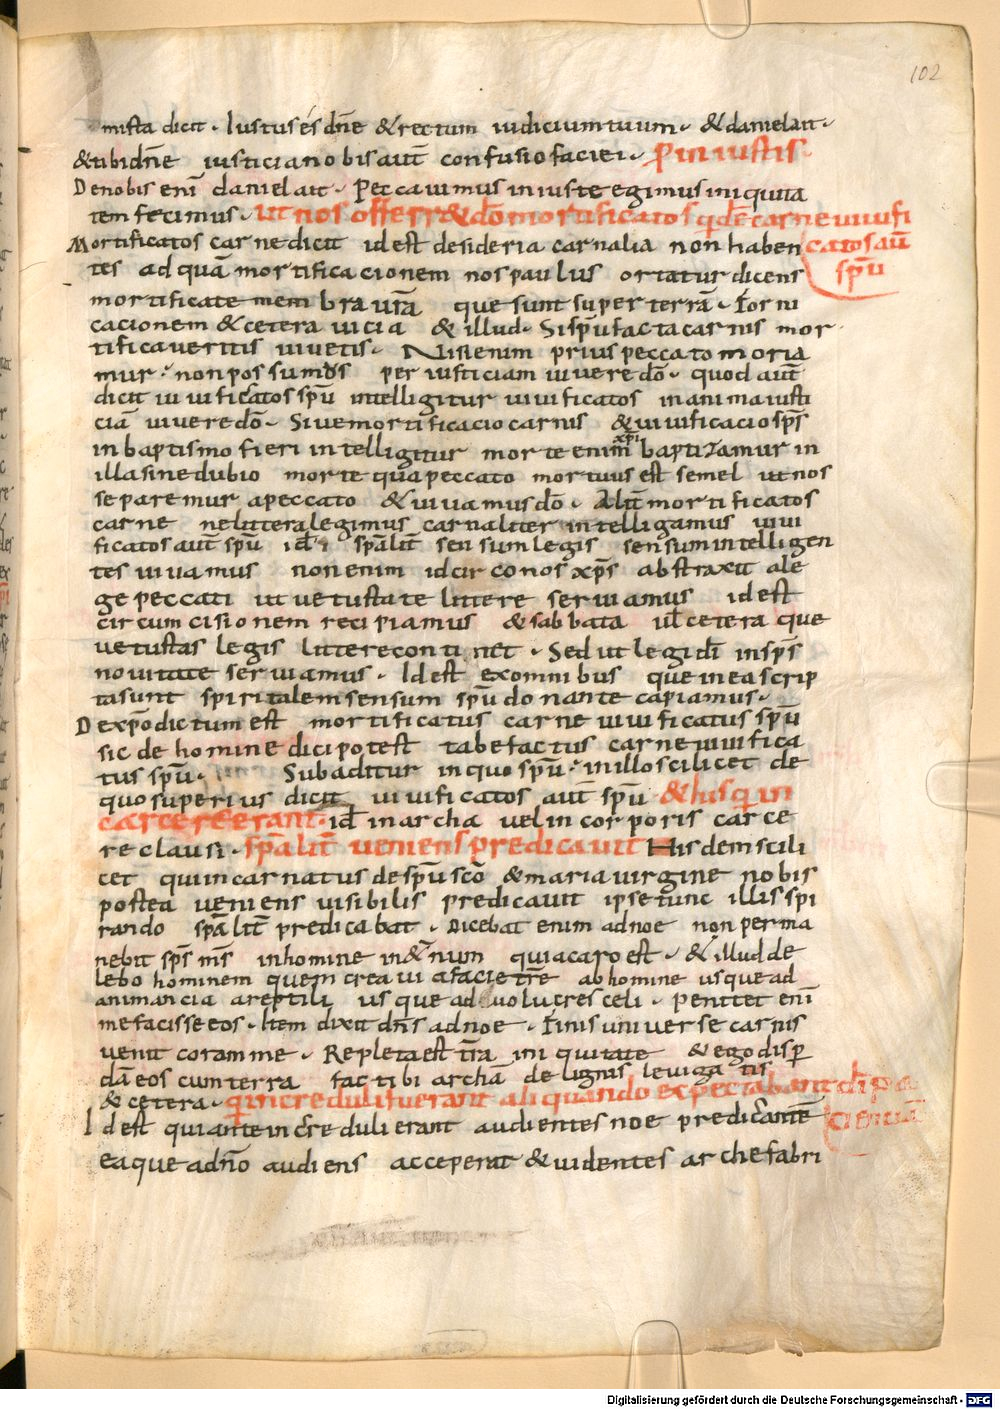 102
mista dicit · Iustus és dn̄e & rectum iudicium tuum · & daniel ait ·
& tibi dn̄e iusticia nobis aut̄ confusio faciei · p̄ iniustis
De nobis enī daniel ait · Peccavimus iniuste egimus iniquita
tem fecimus · ut nos offerr& dō mortificatos qdē carne vivifi
Mortificatos carne dicit id est desideria carnalia non haben catos aū
tes ad quā mortificacionem nos paulus ortatur dicens sp̄u
mortificate membra vr̄a que sunt super terrā · forni
cacionem & cetera vicia & illud · Si sp̄u facta carnis mor
tificaveritis vivetis · Nisi enim prius peccato moria
mur · non possumus per iusticiam vivere dō · quod aut̄
dicit vivificatos sp̄u intelligitur vivificatos in anima iusti
ciā vivere dō · Sive mortificacio carnis & vivificacio sp̄s
in baptismo fieri intelligitur morte enim xp̄i baptizamur in
illa sine dubio morte qua peccato mortuus est semel ut nos
separemur a peccato & vivamus dō · Alit̄ mortificatos
carne ne littera legimus carnaliter intelligamus vivi
ficatos aut̄ sp̄u id̄ sp̄alit̄ sensum legis sensum intelligen
tes vivamus non enim idcirco nos xp̄s abstraxit a le
ge peccati ut vetustate littere serviamus id est
circumcisionem recipiamus & sabbata ul̄ cetera que
vetustas legis littere continet · Sed ut legi dī in sp̄s
novitate serviamus · Id est ex omnibus que in ea scrip
ta sunt spiritalem sensum sp̄u donante capiamus ·
De xp̄o dictum est mortificatus carne vivificatus sp̄u
sic de homine dici potest tabefactus carne vivifica
tus sp̄u · Subaditur in quo sp̄u · in illo scilicet de
quo superius dicit vivificatos aut̄ sp̄u & his q̄ in
carcere erant · id̄ in archa vel in corporis carce
re clausi · sp̄alit̄ veniens predicavit His dem scili
cet qui incarnatus de sp̄u scō & maria virgine nobis
postea veniens visibilis predicavit ipse tunc illis spi
rando sp̄alit̄ predicabat · Dicebat enim ad noe non perma
nebit sp̄s ms̄ in homine in &̄num quia caro est · & illud de
lebo hominem quem creavi a facie tr̄e ab homine usque ad
animancia a reptili usque ad volucres celi · penitet enī
me fecisse eos · Item dixit dn̄s ad noe · Finis universe carnis
venit coram me · Repleta est tr̄a iniquitate & ego disp̄
dā eos cum terra fac tibi archā de lignis levigatis
& cetera · q̄ increduli fuerant aliquando expectabant dī pa
Id est qui ante increduli erant audientes noe predicante ciencia
ea que ad nō audiens acceperat & videntes arche fabri
Digitalisierung gefördert durch die Deutsche Forschungsgemeinschaft - DFG